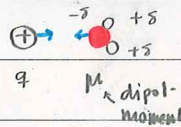 -δ +δ
+ +δ
q μ dipol-
moment